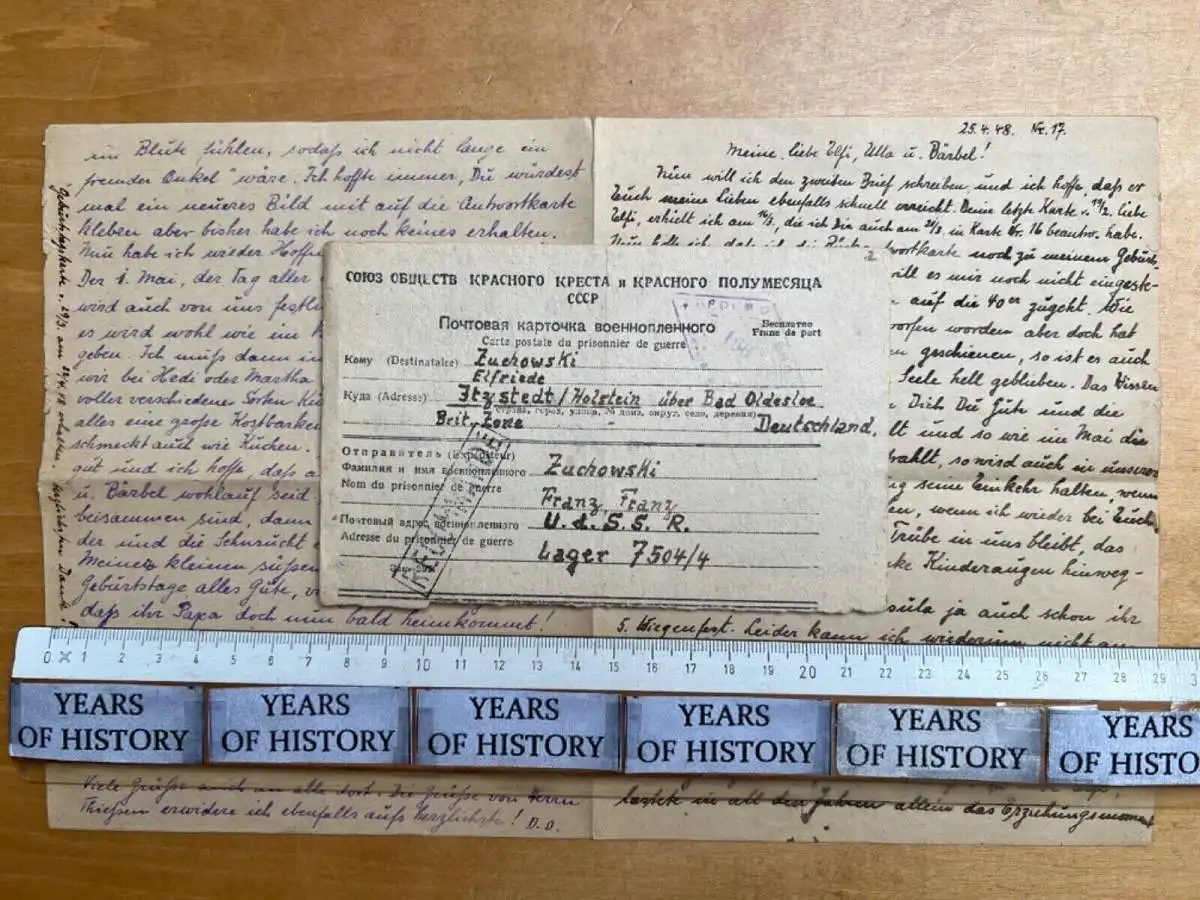 im Blute fühlen, sodaß ich nicht lange ein
"fremder Onkel" wäre. Ich hoffte immer, Du würdest
mal ein neueres Bild mit auf die Antwortkarte
kleben aber bisher habe ich noch keines erhalten.
Nun habe ich wieder Hoffn
Der 1. Mai, der Tag aller
wird auch von uns festl
es wird wohl wie im
geben. Ich muß dann im
wir bei Hedi oder Martha
voller verschiedener Sorten Ku
alles eine große Kostbarke
schmeckt auch wie Kuchen.
gut und ich hoffe, daß a
u. Bärbel wohlauf seid
beisammen sind, dann
der und die Sehnsucht
Meiner kleinen süßen
Geburtstage alles Gute, v
daß ihr Papa doch nun bald heimkommt!
Viele Grüße auch an alle dort. Die Grüße von Herrn
Thießen erwidere ich ebenfalls aufs Herzlichste! D.O.
Geburtstagskarte v. 29/3. am 22/4. 48 erhalten. Herzlichsten Dank!
25.4.48. Nr. 17.
Meine liebe Elfi, Ulla u. Bärbel!
Nun will ich den zweiten Brief schreiben, und ich hoffe, daß er
Euch meine Lieben ebenfalls schnell erreicht. Deine letzte Karte v. 19/2. liebe
Elfi, erhielt ich am 16/3., die ich Dir auch am 21/3. in Karte Nr. 16 beantw. habe.
wortkarte noch zu meinem Geburts-
will es mir noch nicht eingeste-
auf die 40er zugeht. Wie
worfen worden aber doch hat
n geschienen, so ist es auch
Seele hell geblieben. Das Wissen
Dich Du Gute und die
lt und so wie im Mai die
rahlt, so wird auch in unseren
g seine Einkehr halten, wenn
en, wenn ich wieder bei Euch
Trübe in uns bleibt, das
ke Kinderaugen hinweg-
sula ja auch schon ihr
5. Wiegenfest. Leider kann ich wiederum nicht an
lastet in all den Jahren allein das Erziehungsmoment
СОЮЗ ОБЩЕСТВ КРАСНОГО КРЕСТА и КРАСНОГО ПОЛУМЕСЯЦА
СССР
Почтовая карточка военнопленного
Бесплатно
Franc de port
Carte postale du prisonnier de guerre
Кому (Destinataire) Zuchowski
Elfriede
Куда (Adresse) Itzstedt/Holstein über Bad Oldesloe
(страна, город, улица, № дома, округ, село, деревня)
Brit. Zone Deutschland.
Отправитель (Expéditeur)
Фамилия и имя военнопленного Zuchowski
Nom du prisonnier de guerre
Franz, Franz
Почтовый адрес военнопленного U.d.S.S.R.
Adresse du prisonnier de guerre
Lager 7504/4
0 1 2 3 4 5 6 7 8 9 10 11 12 13 14 15 16 17 18 19 20 21 22 23 24 25 26 27 28 29 3
YEARS
OF HISTORY
YEARS
OF HISTORY
YEARS
OF HISTORY
YEARS
OF HISTORY
YEARS
OF HISTORY
YEARS
OF HISTO